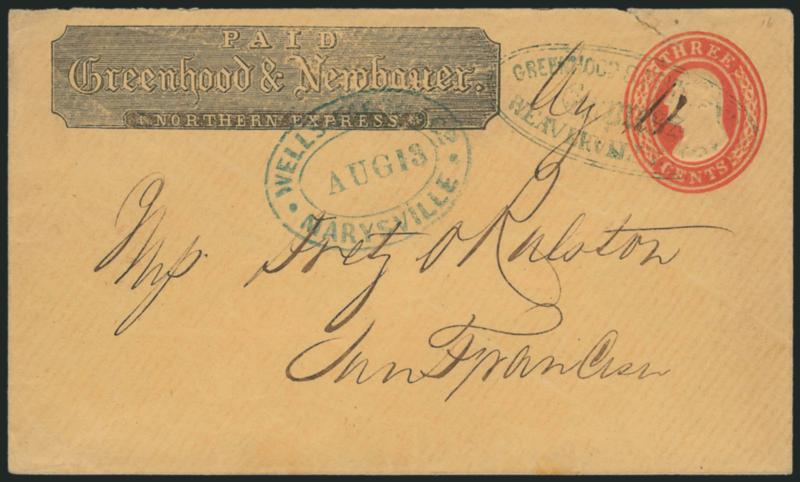 PAID
Greenhood & Newbauer.
NORTHERN EXPRESS
WELLS
AUG 13
MARYSVILLE
GREENHOOD
WEAVERVILLE
THREE
CENTS
Ralston
San Francisco
16